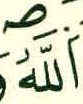 صـ
اَللّٰهُ